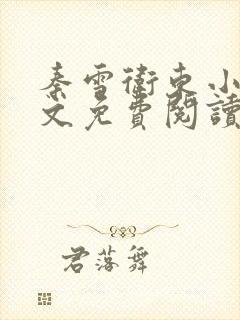 秦雪衛東小
文免費閱讀
君落舞